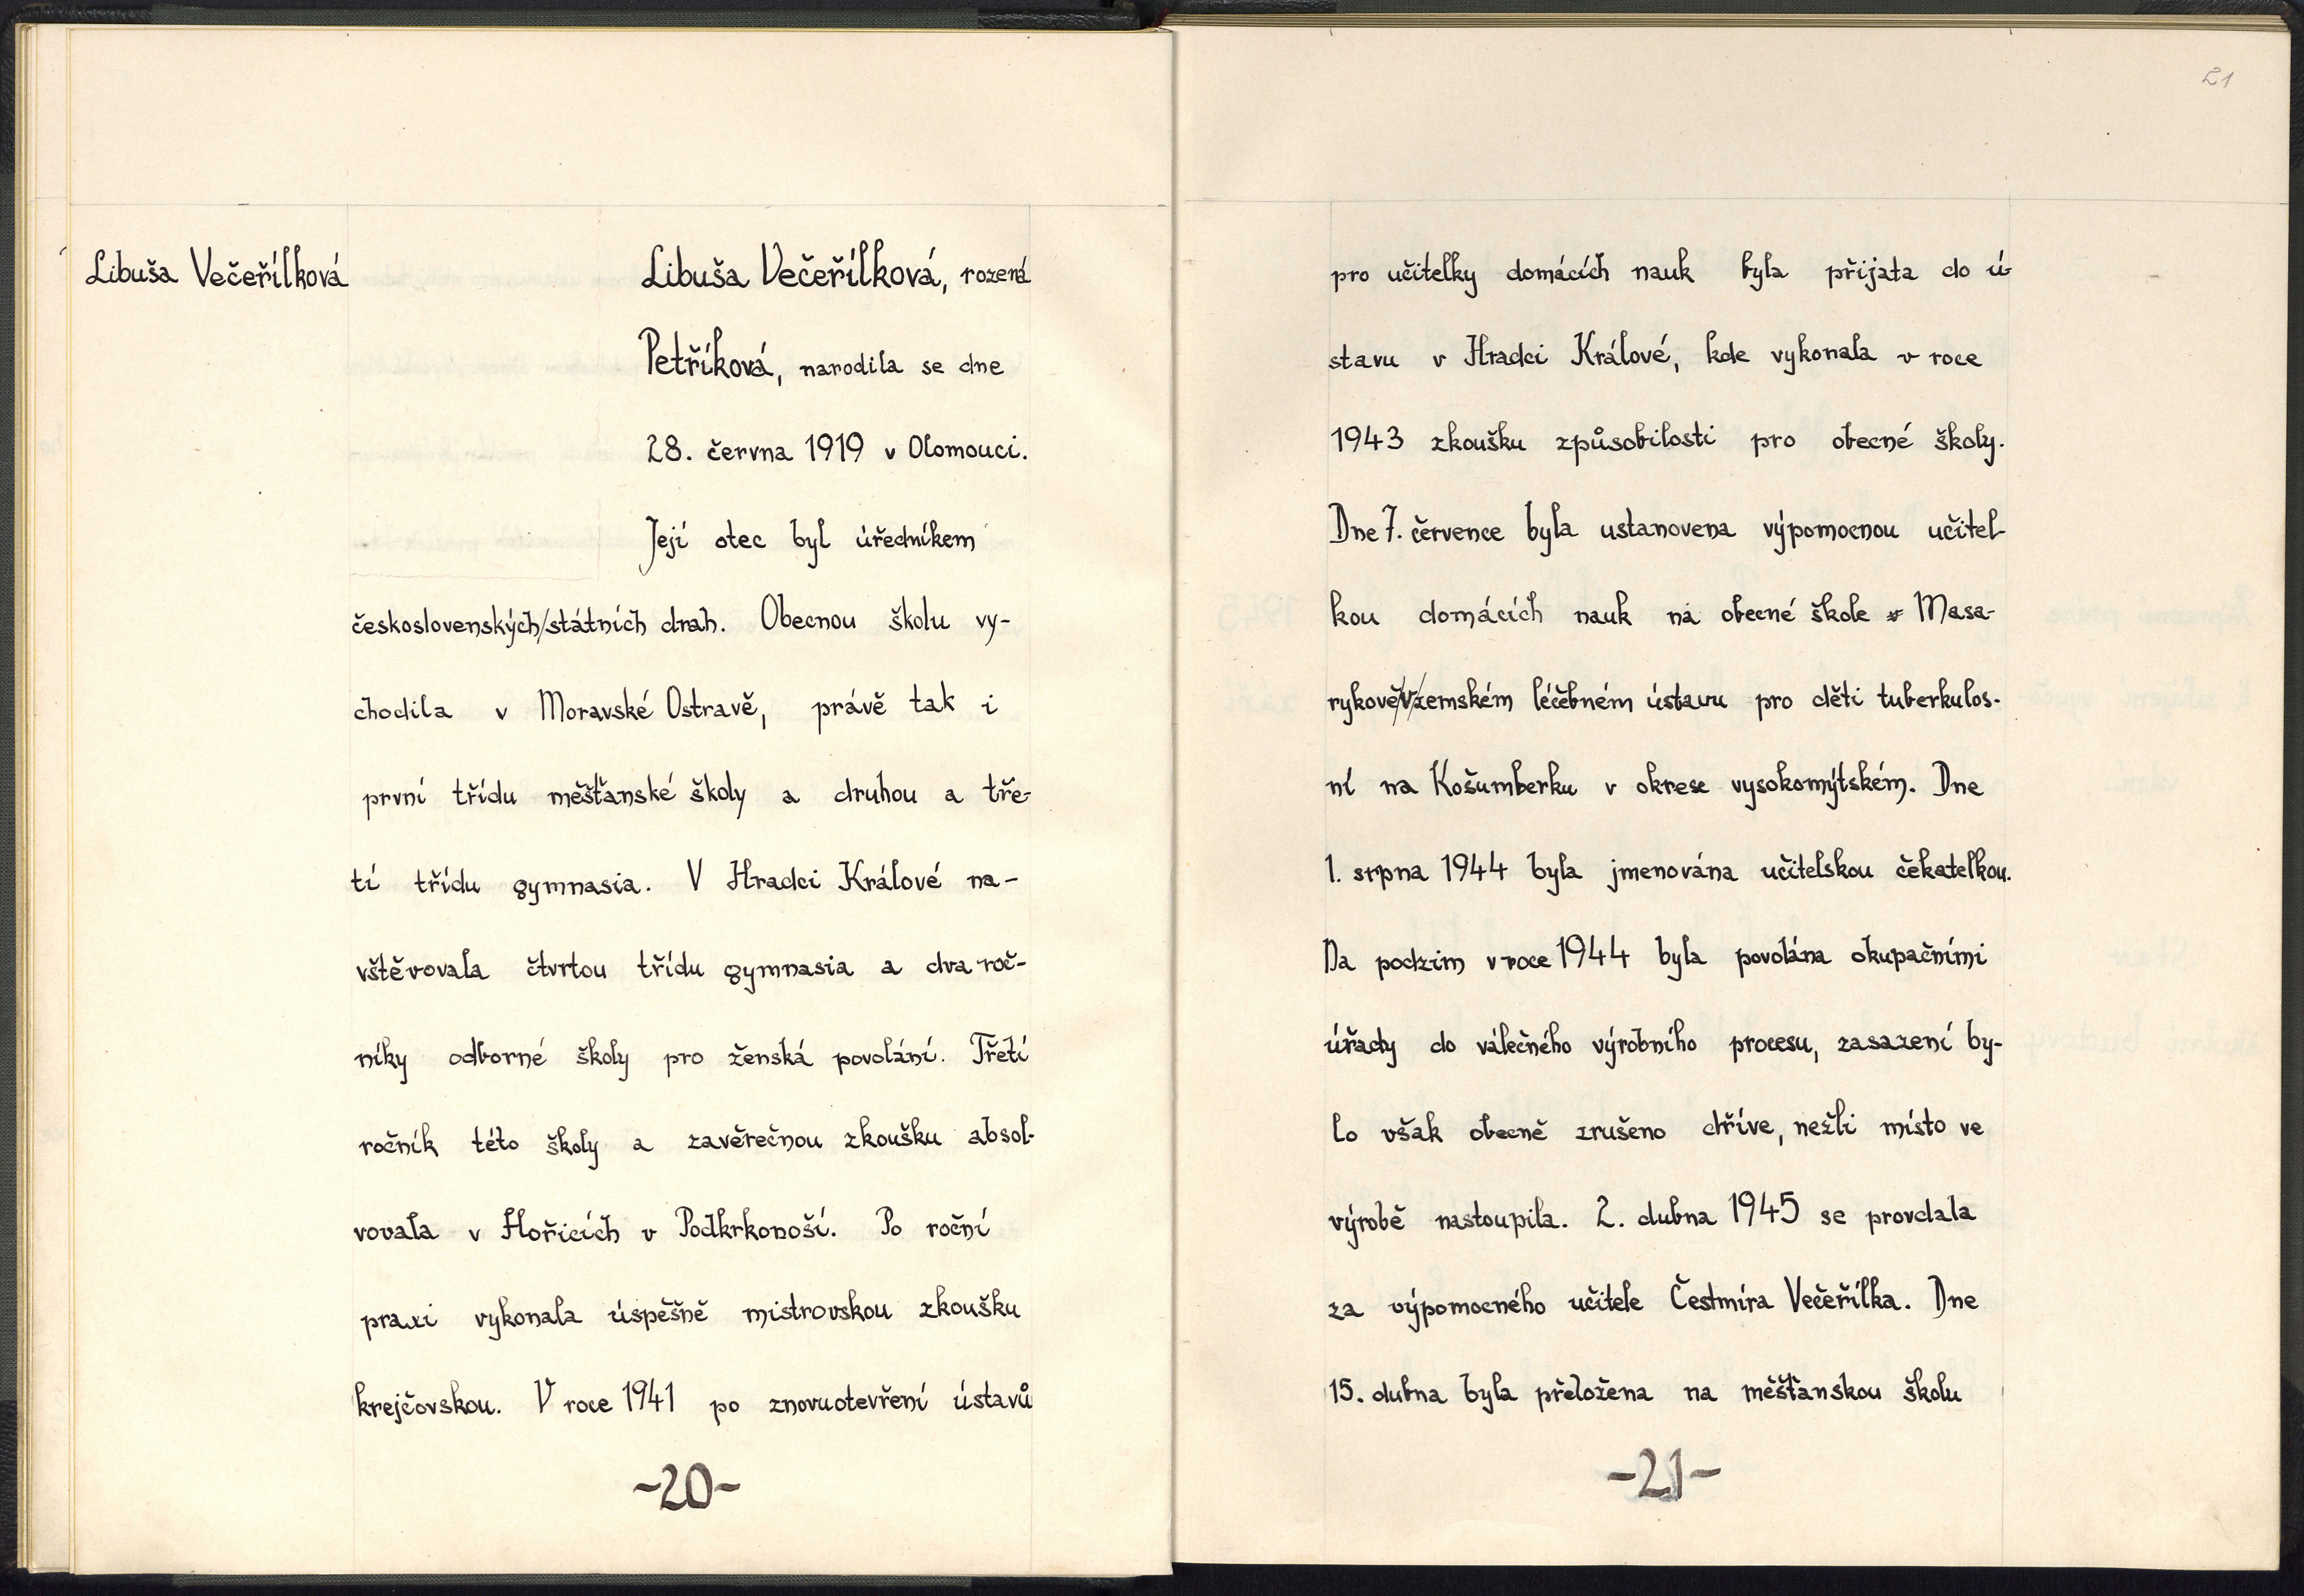 Libuša Večeřílková
Libuša Večeřílková, rozená
Petříková, narodila se dne
28. června 1919 v Olomouci.
Její otec byl úředníkem
československých/státních drah. Obecnou školu vy-
chodila v Moravské Ostravě, právě tak i
první třídu měšťanské školy a druhou a tře-
tí třídu gymnasia. V Hradci Králové na-
vštěvovala čtvrtou třídu gymnasia a dva roč-
níky odborné školy pro ženská povolání. Třetí
ročník této školy a zavěrečnou zkoušku absol-
vovala v Hořicích v Podkrkonoší. Po roční
praxi vykonala úspěšně mistrovskou zkoušku
krejčovskou. V roce 1941 po znovuotevření ústavů
-20-
21
pro učitelky domácích nauk byla přijata do ú-
stavu v Hradci Králové, kde vykonala v roce
1943 zkoušku způsobilosti pro obecné školy.
Dne 7. července byla ustanovena výpomocnou učitel-
kou domácích nauk na obecné škole v Masa-
rykově/v/zemském léčebném ústavu pro děti tuberkulos-
ní na Košumberku v okrese vysokomýtském. Dne
1. srpna 1944 byla jmenována učitelskou čekatelkou.
Na podzim v roce 1944 byla povolána okupačními
úřady do válečného výrobního procesu, zasazení by-
lo však obecně zrušeno dříve, nežli místo ve
výrobě nastoupila. 2. dubna 1945 se provdala
za výpomocného učitele Čestmíra Večeřílka. Dne
15. dubna byla přeložena na měšťanskou školu
-21-